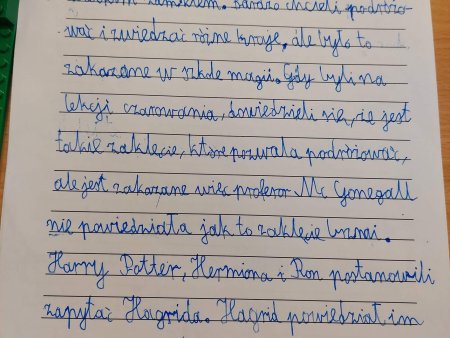 zamkiem. Bardzo chcieli podróżo-
wać i zwiedzać różne kraje, ale było to
zakazane w szkole magii. Gdy byli na
lekcji czarowania, dowiedzieli się, że jest
takie zaklęcie, które pozwala podróżować,
ale jest zakazane więc profesor Mc Gonegall
nie powiedniała jak to zaklęcie brzmi.
Harry Potter, Hermiona i Ron postanowili
zapytać Hagrida. Hagrid powiedział im